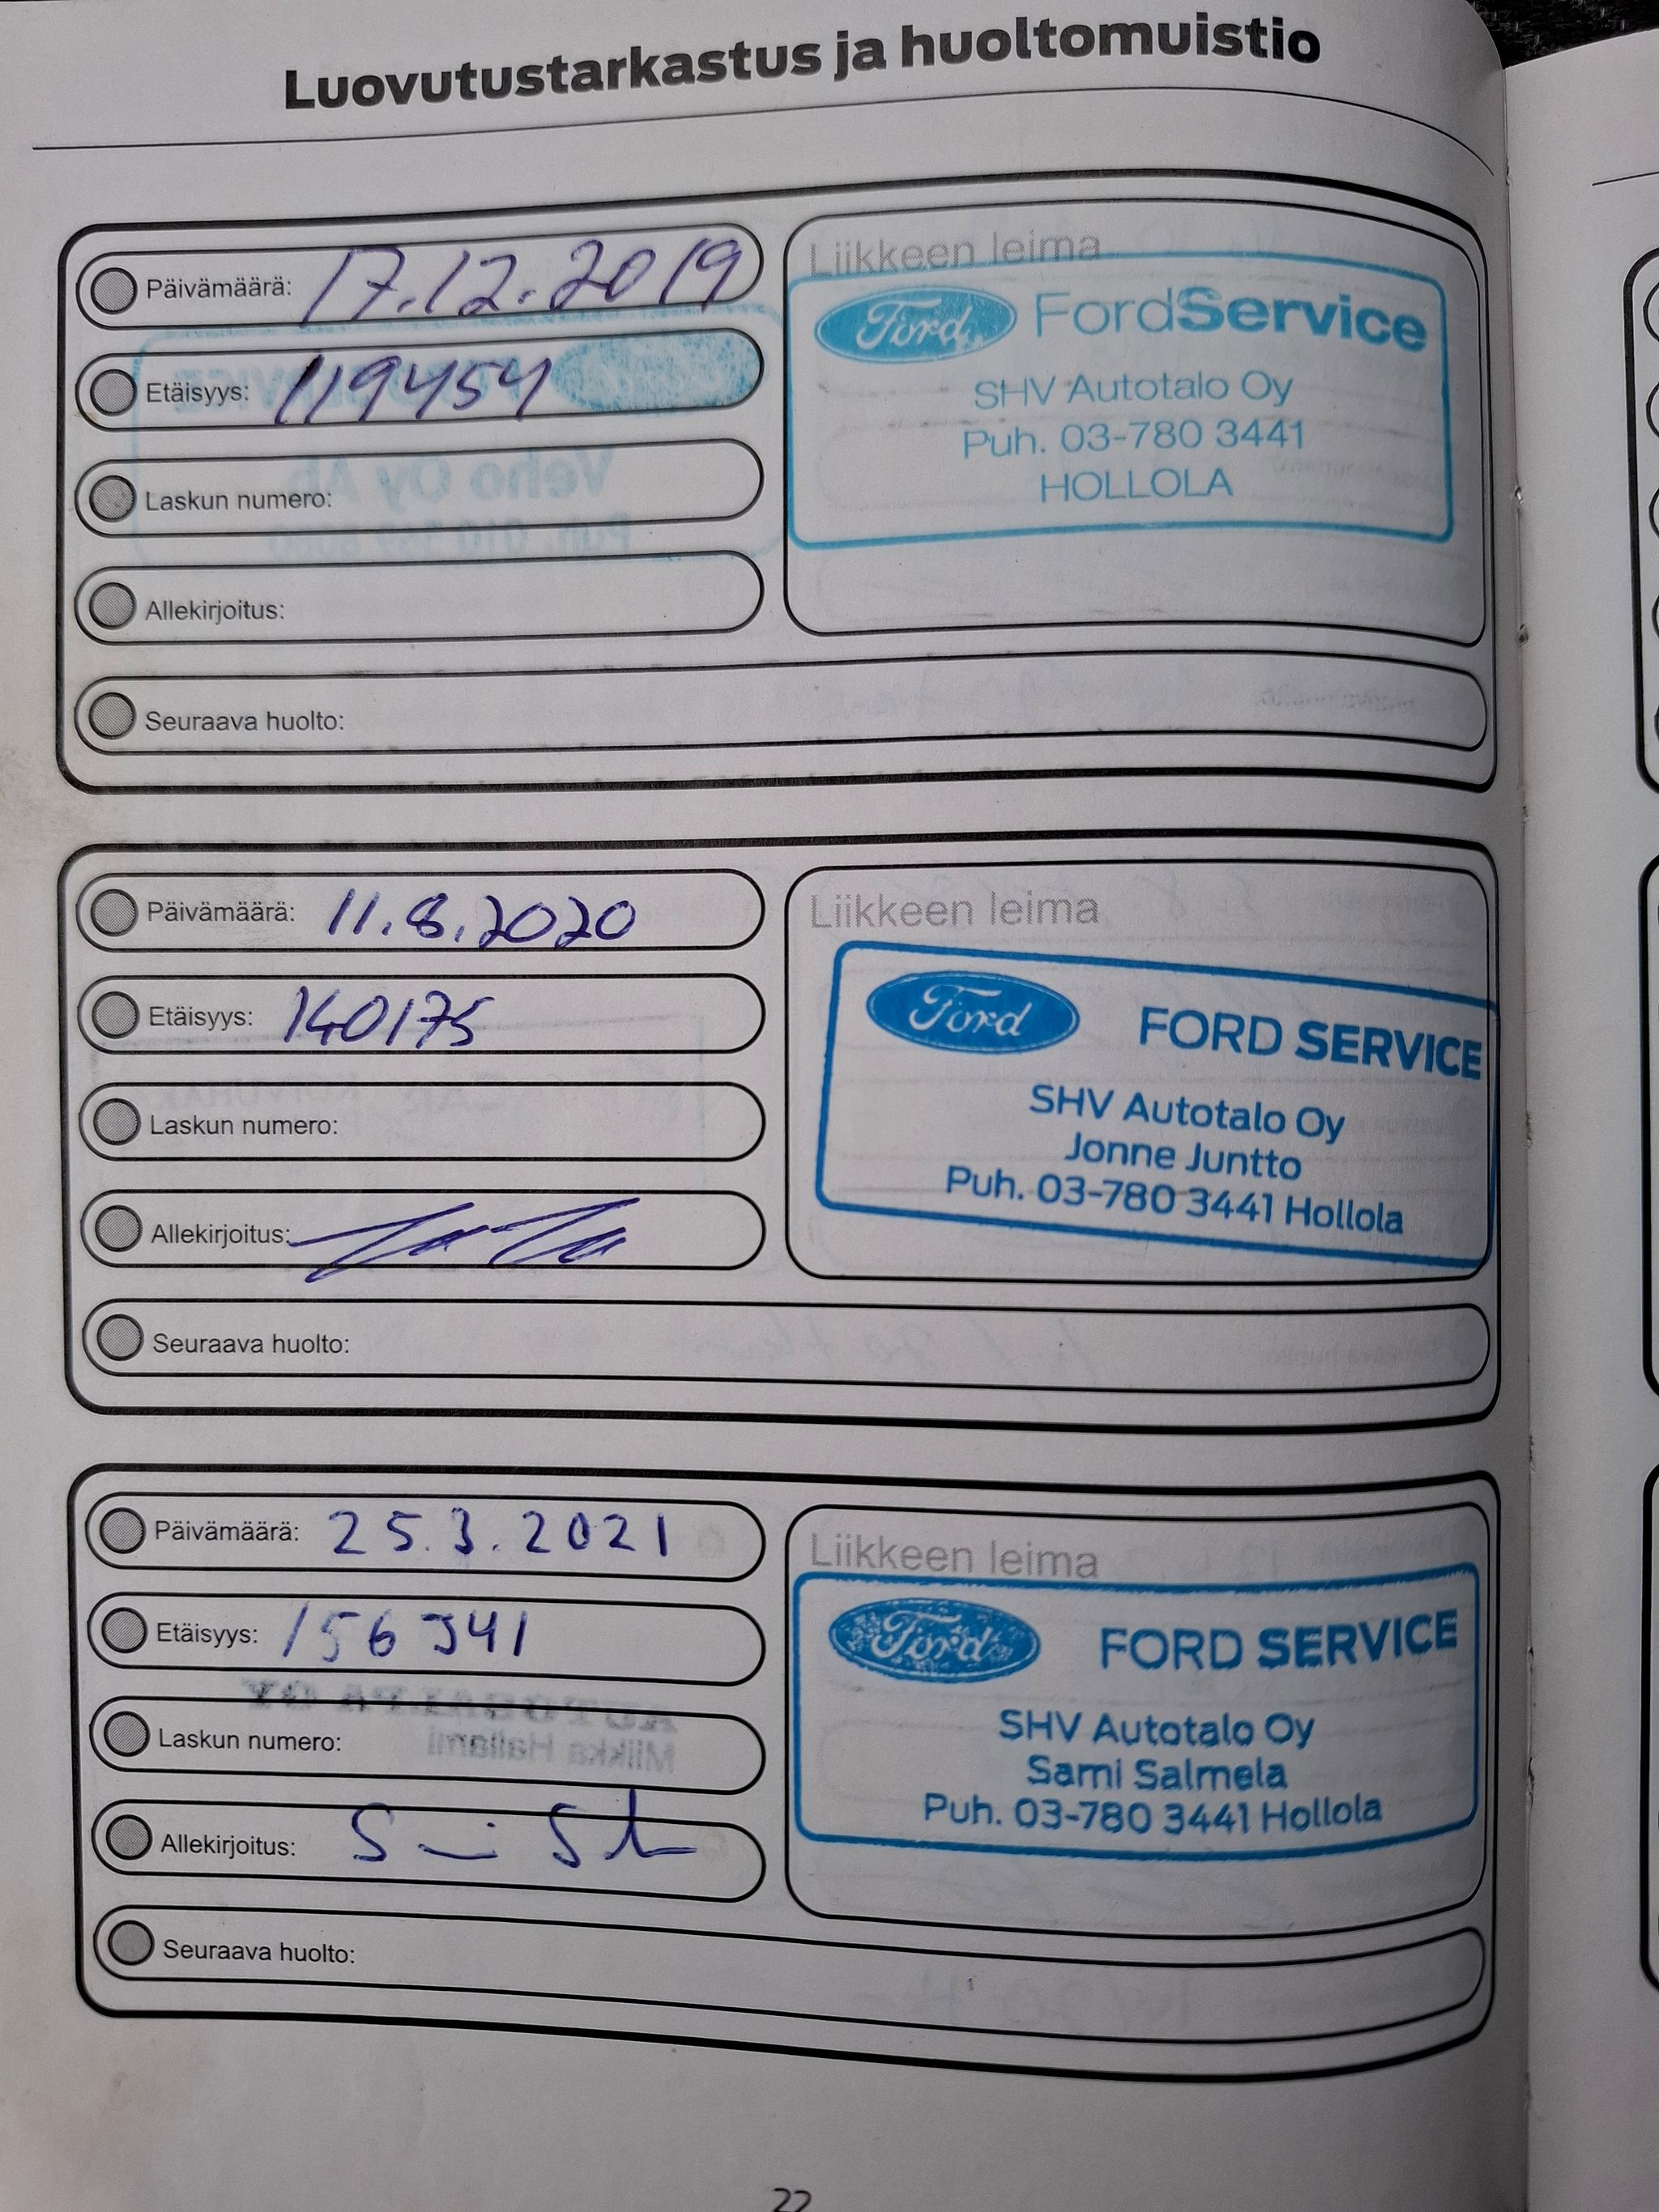 Luovutustarkastus ja huoltomuistio
Päivämäärä: 17.12.2019
Etäisyys: 119454
Laskun numero:
Allekirjoitus:
Seuraava huolto:
Liikkeen leima
Ford FordService
SHV Autotalo Oy
Puh. 03-780 3441
HOLLOLA
Päivämäärä: 11.8.2020
Etäisyys: 140175
Laskun numero:
Allekirjoitus:
Seuraava huolto:
Liikkeen leima
Ford FORD SERVICE
SHV Autotalo Oy
Jonne Juntto
Puh. 03-780 3441 Hollola
Päivämäärä: 25.3.2021
Etäisyys:
Laskun numero:
Allekirjoitus:
Seuraava huolto:
Liikkeen leima
Ford FORD SERVICE
SHV Autotalo Oy
Sami Salmela
Puh. 03-780 3441 Hollola
22